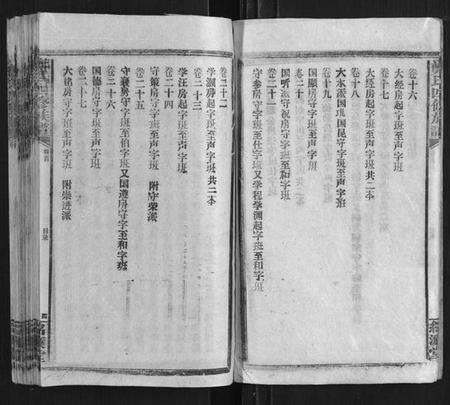 卷十六
大經房起字班至声字班
卷十七
大經房起字班至声字班共二本
卷十八
守字班至声字班
卷十九
國顯房守字班至声字班
卷二十
國听
守祝房守字班至和字班
卷二十一
守参房守字班至仕字班又學程學渊起字班至和字班
卷二十二
學渊房起字班至声字班共二本
卷二十三
學汪房起字班至声字班
卷二十四
守策房守字班至声字班 附守榮派
卷二十五
守襄房守字班至伯字班又国遵房守字班至和字班
卷二十六
国德房守字班至声字班
卷二十七
房守字班至声字班 附崇进派
卷首
目录
四